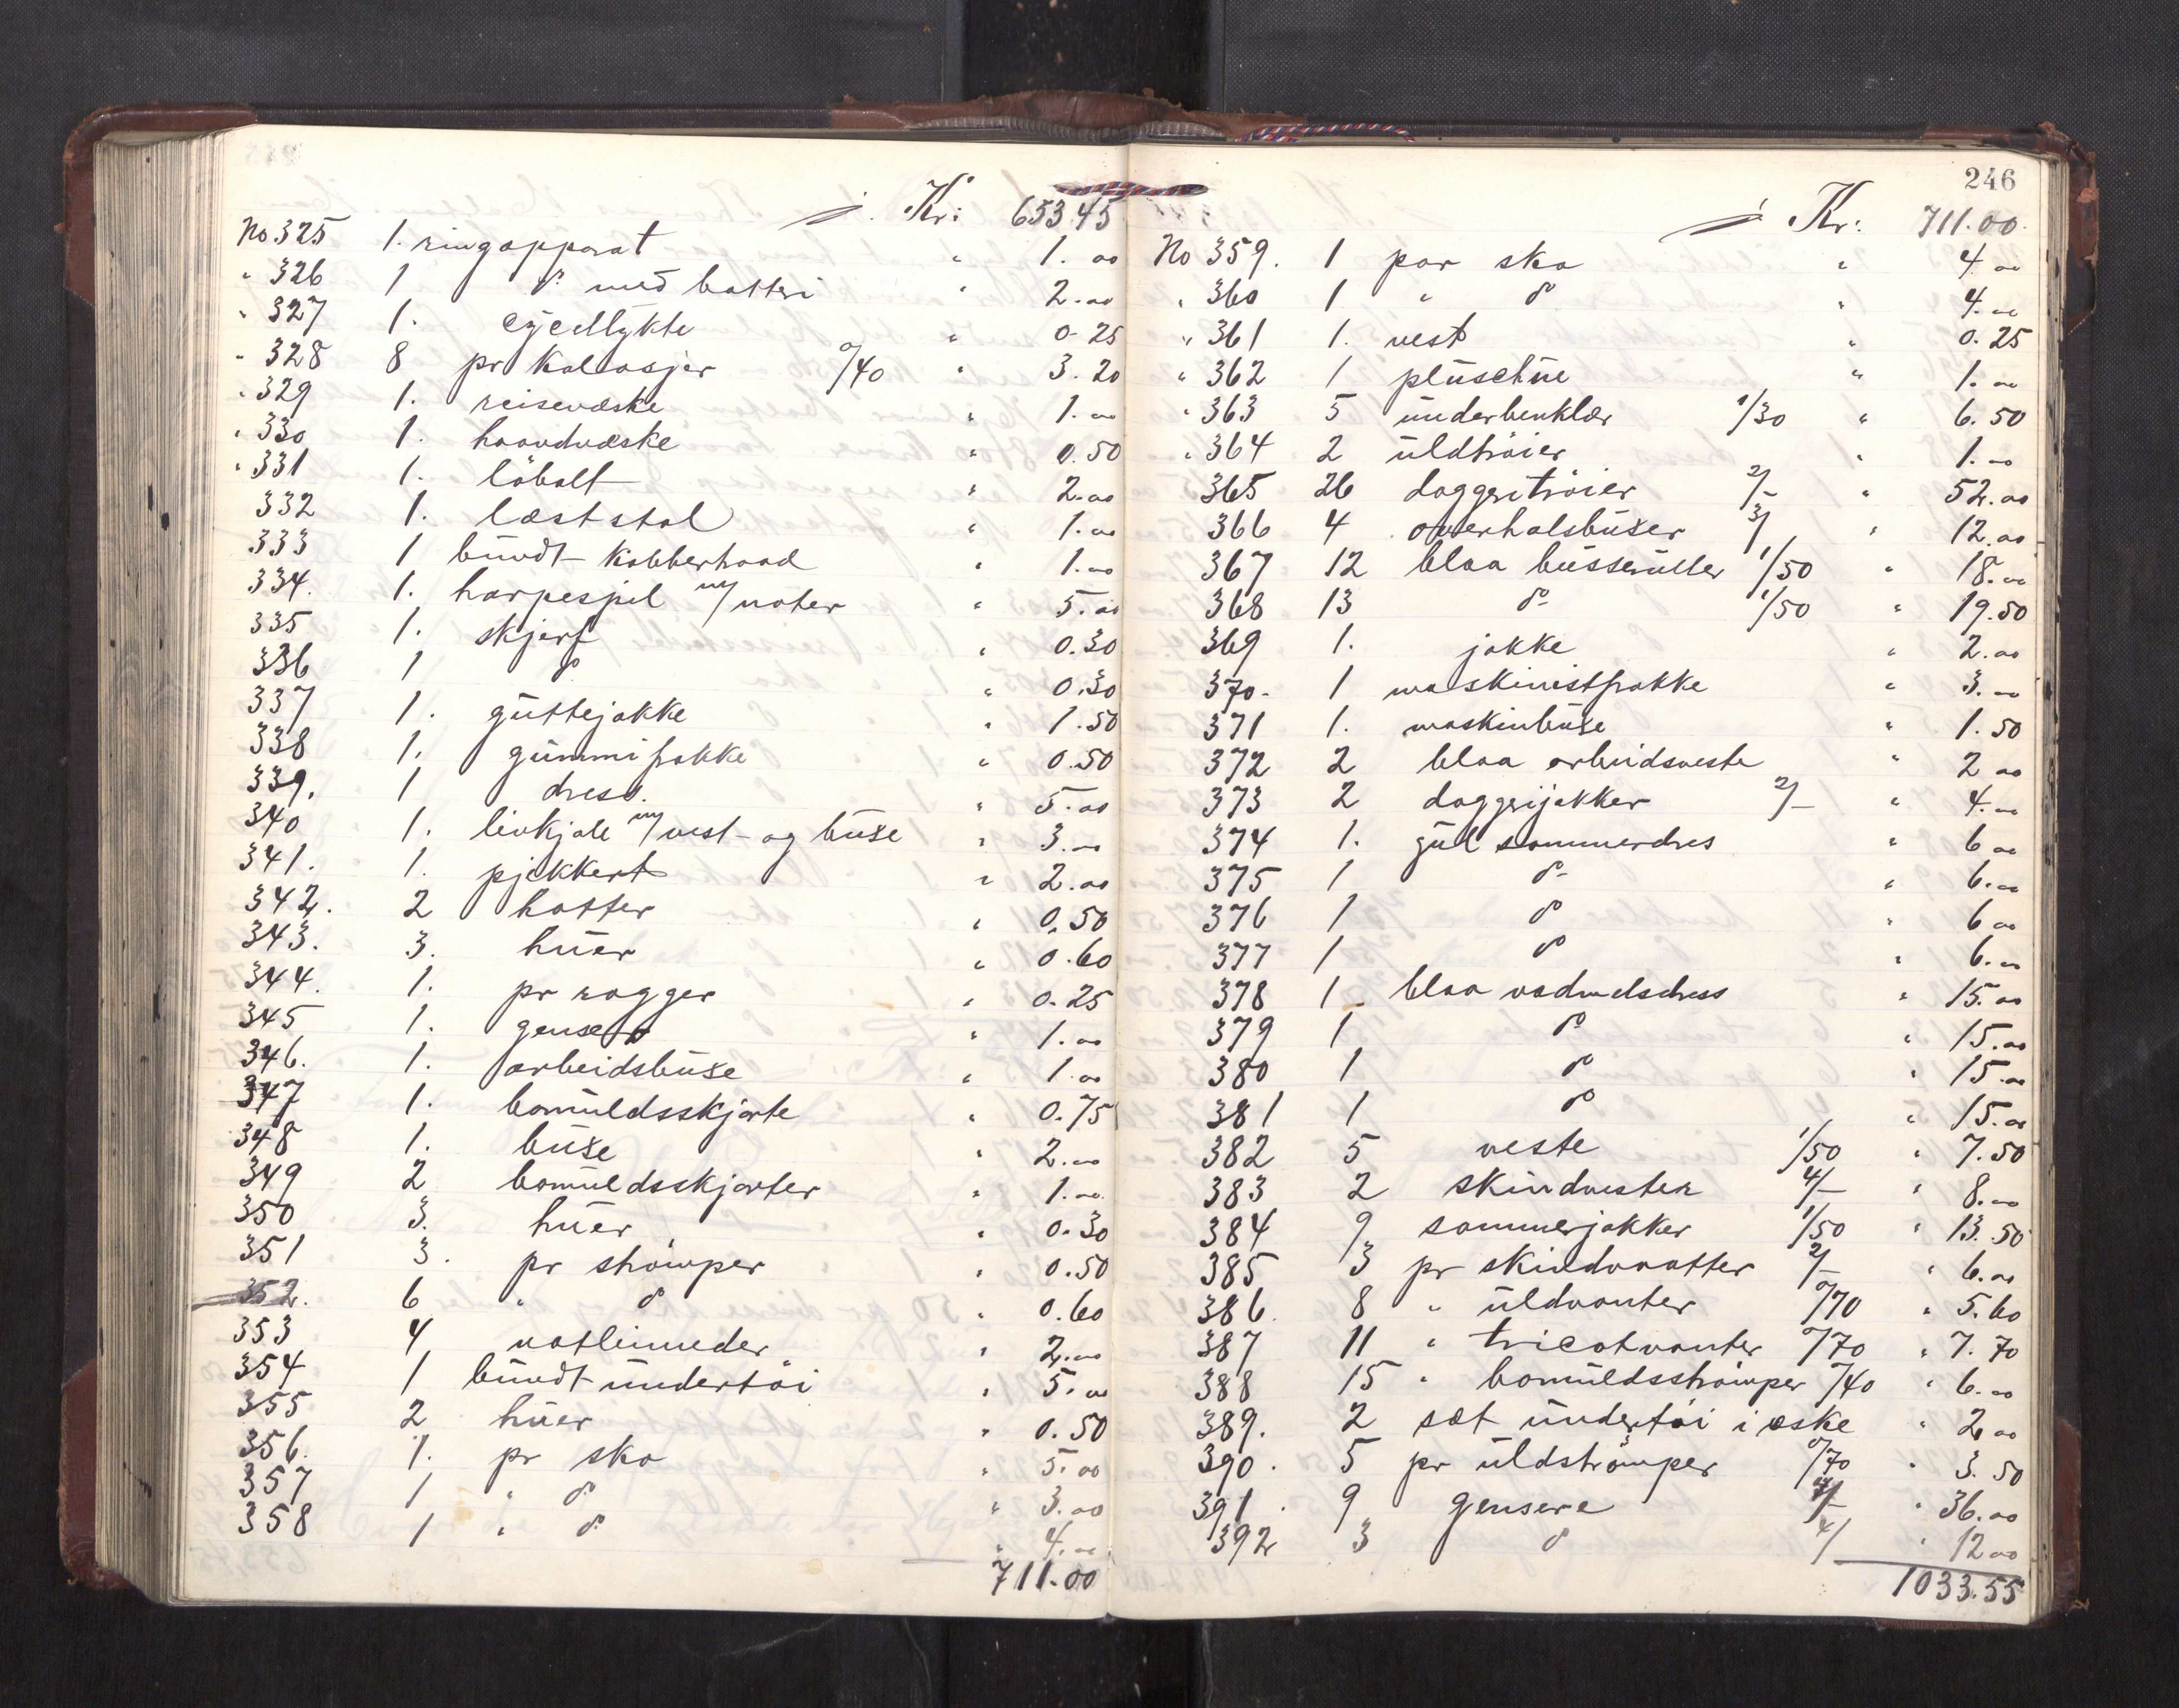 Kr: 653.45
No. 325 1. ringapparat " 1.00
" 326 1 do med batteri " 2.00
" 327 1. cycellykte " 0.25
" 328 8 pr kalosjer 0/40 " 3.20
" 329 1. reisevæske " 1.00
" 330 1. haandvæske " 0.50
" 331 1. löbolt " 2.00
332 1. læststol " 1.00
333 1 bundt kobberhaad " 1.00
334. 1. harpespil m/noter " 5.00
335 1. skjerf " 0.30
336 1 do " 0.30
337 1. guttejakke " 1.50
338 1. gummifrakke " 0.50
339. 1 dress. " 5.00
340 1. livkjole m/vest og buxe " 3.00
341. 1. pjekkert " 2.00
342. 2 hatter " 0.50
343. 3. huer " 0.60
344. 1. pr ragger " 0.25
345 1. genser " 1.00
346. 1. arbeidsbuxe " 1.00
347 1. bomuldsskjorte " 0.75
348 1. buxe " 2.00
349 2 bomuldsskjorter " 1.00
350 3. huer " 0.30
351 3. pr strömper " 0.50
352. 6 " do " 0.60
353 4 " 2.00
354 1 bundt undertöi " 5.00
355 2 huer " 0.50
356. 1. pr sko " 5.00
357 1 " do " 3.00
358 1 " do " 4.00
711.00
246
Kr: 711.00
No 359. 1 par sko " 4.00
" 360 1 " do " 4.00
" 361 1. vest " 0.25
" 362 1 plüschue " 1.00
" 363 5 underbenklær 1/30 " 6.50
" 364 2 uldtröier " 1.00
365 26 daggeritröier 2/- " 52.00
366 4 overhalsbuxer 3/ " 12.00
367 12 blaa busseruller 1/50 " 18.00
368 13 do 1/50 " 19.50
369 1. jakke " 2.00
370. 1 maskinistfrakke " 3.00
371 1. maskinbuxe " 1.50
372 2 blaa arbeidsveste " 2.00
373 2 daggrijakker 2/- " 4.00
374 1. gul sommerdres " 6.00
375 1 do " 6.00
376 1 do " 6.00
377 1 do " 6.00
378 1 blaa vadmelsdress " 15.00
379 1 do " 15.00
380 1 do " 15.00
381 1 do " 15.00
382 5 veste 1/50 " 7.50
383 2 skindvester 4/- " 8.00
384 9 sommerjakker 1/50 " 13.50
385 3 pr skindvaatter 2/- " 6.00
386. 8 " uldvanter 0/70 " 5.60
387 11 " tricotvanter 0/70 " 7.70
388 15 " bomuldsströmper 0/40 " 6.00
389. 2 sæt undertöi i æske " 2.00
390. 5 pr uldströmper 0/70 " 3.50
391. 9 gensere 4/- " 36.00
392 3 do 4/ " 12.00
1033.55